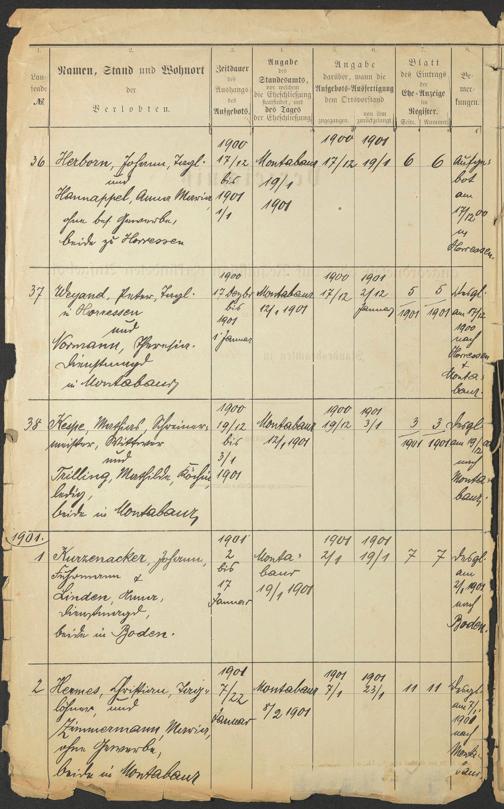 1. 2. 3. 4. 5. 6. 7. 8.
Lau-
fende
№
Namen, Stand und Wohnort
der
Verlobten.
Zeitdauer
des
Aushangs
des
Aufgebots.
Angabe
des
Standesamts,
vor welchem
die Eheschließung
stattfindet, und
des Tages
der Eheschließung.
Angabe
darüber, wann die
Aufgebots-Ausfertigung
dem Ortsvorstand
zugegangen.
von ihm
zurückgelangt.
Blatt
des Eintrags
der
Ehe-Anzeige
im
Register.
Seite. Nummer.
Be-
mer-
kungen.
36
Herborn, Johann, Tagl.
und
Hannappel, Anna Maria,
ohne bes Gewerbe,
beide zu Horressen
1900
17/12
bis
1901
1/1
Montabaur
19/1
1901
1900
17/12
1901
19/1
6 6
Aufge-
bot
am
17/12 00
in
Horressen
37
Weyand, Peter, Tagl.
u Horressen
und
Dienstmagd
in Montabaur
1900
17 Dezbr
bis
1901
1 Januar
Montabaur
12/1 1901
1900
17/12
1901
2/12
Januar
5 5
1901 1901
Desgl.
am 17/12
1900
nach
Horressen
+
Monta-
baur.
38
Mathias, Schreiner-
meister, Wittwer
und
Trilling, Mathilde, Köchin,
ledig,
beide in Montabaur
1900
19/12
bis
3/1
1901
Montabaur
12/1 1901
1900
19/12
1901
3/1
3 3
1901 1901
Desgl
am 19/12
nach
Monta-
baur,
1901.
1
Kurzenacker, Johann,
Fuhrmann &
Linden, Anna,
Dienstmagd,
beide in Boden.
1901
2
bis
17
Januar
Monta-
baur
19/1 1901
1901
2/1
1901
19/1
7 7
Desgl.
am
2/1 1901
nach
Boden.
2
Hermes, Christian, Tag-
löhner, und
Zimmermann, Maria,
ohne Gewerbe,
beide in Montabaur
1901
7/22
Januar
Montabaur
8/2 1901
1901
7/1
1901
23/1
11 11
Desgl.
am 7/1
1901
nach
Monta-
baur